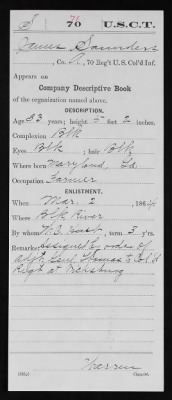 S 70 U.S.C.T.
James Saunders
, Co. A, 70 Reg't U.S. Col'd Inf.
Appears on
Company Descriptive Book
of the organization named above.
DESCRIPTION.
Age 23 years; height 5 feet 2 inches.
Complexion Blk
Eyes Blk ; hair Blk
Where born Maryland,
Occupation Farmer
ENLISTMENT.
When Mar. 2 , 1864
Where Blk River
By whom , term 3 y'rs.
Remarks: Assigned by order of
Adjt Genl Thomas to Col'd
Regt at Vicksburg
Copyist.